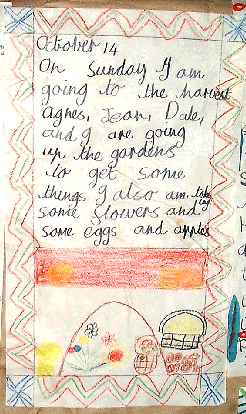 October 14
On Sunday I am
going to the harvest
Agnes, Jean, Dale,
and I are going
in the gardens
to get some
things I also am taking
some flowers and
some eggs and apples